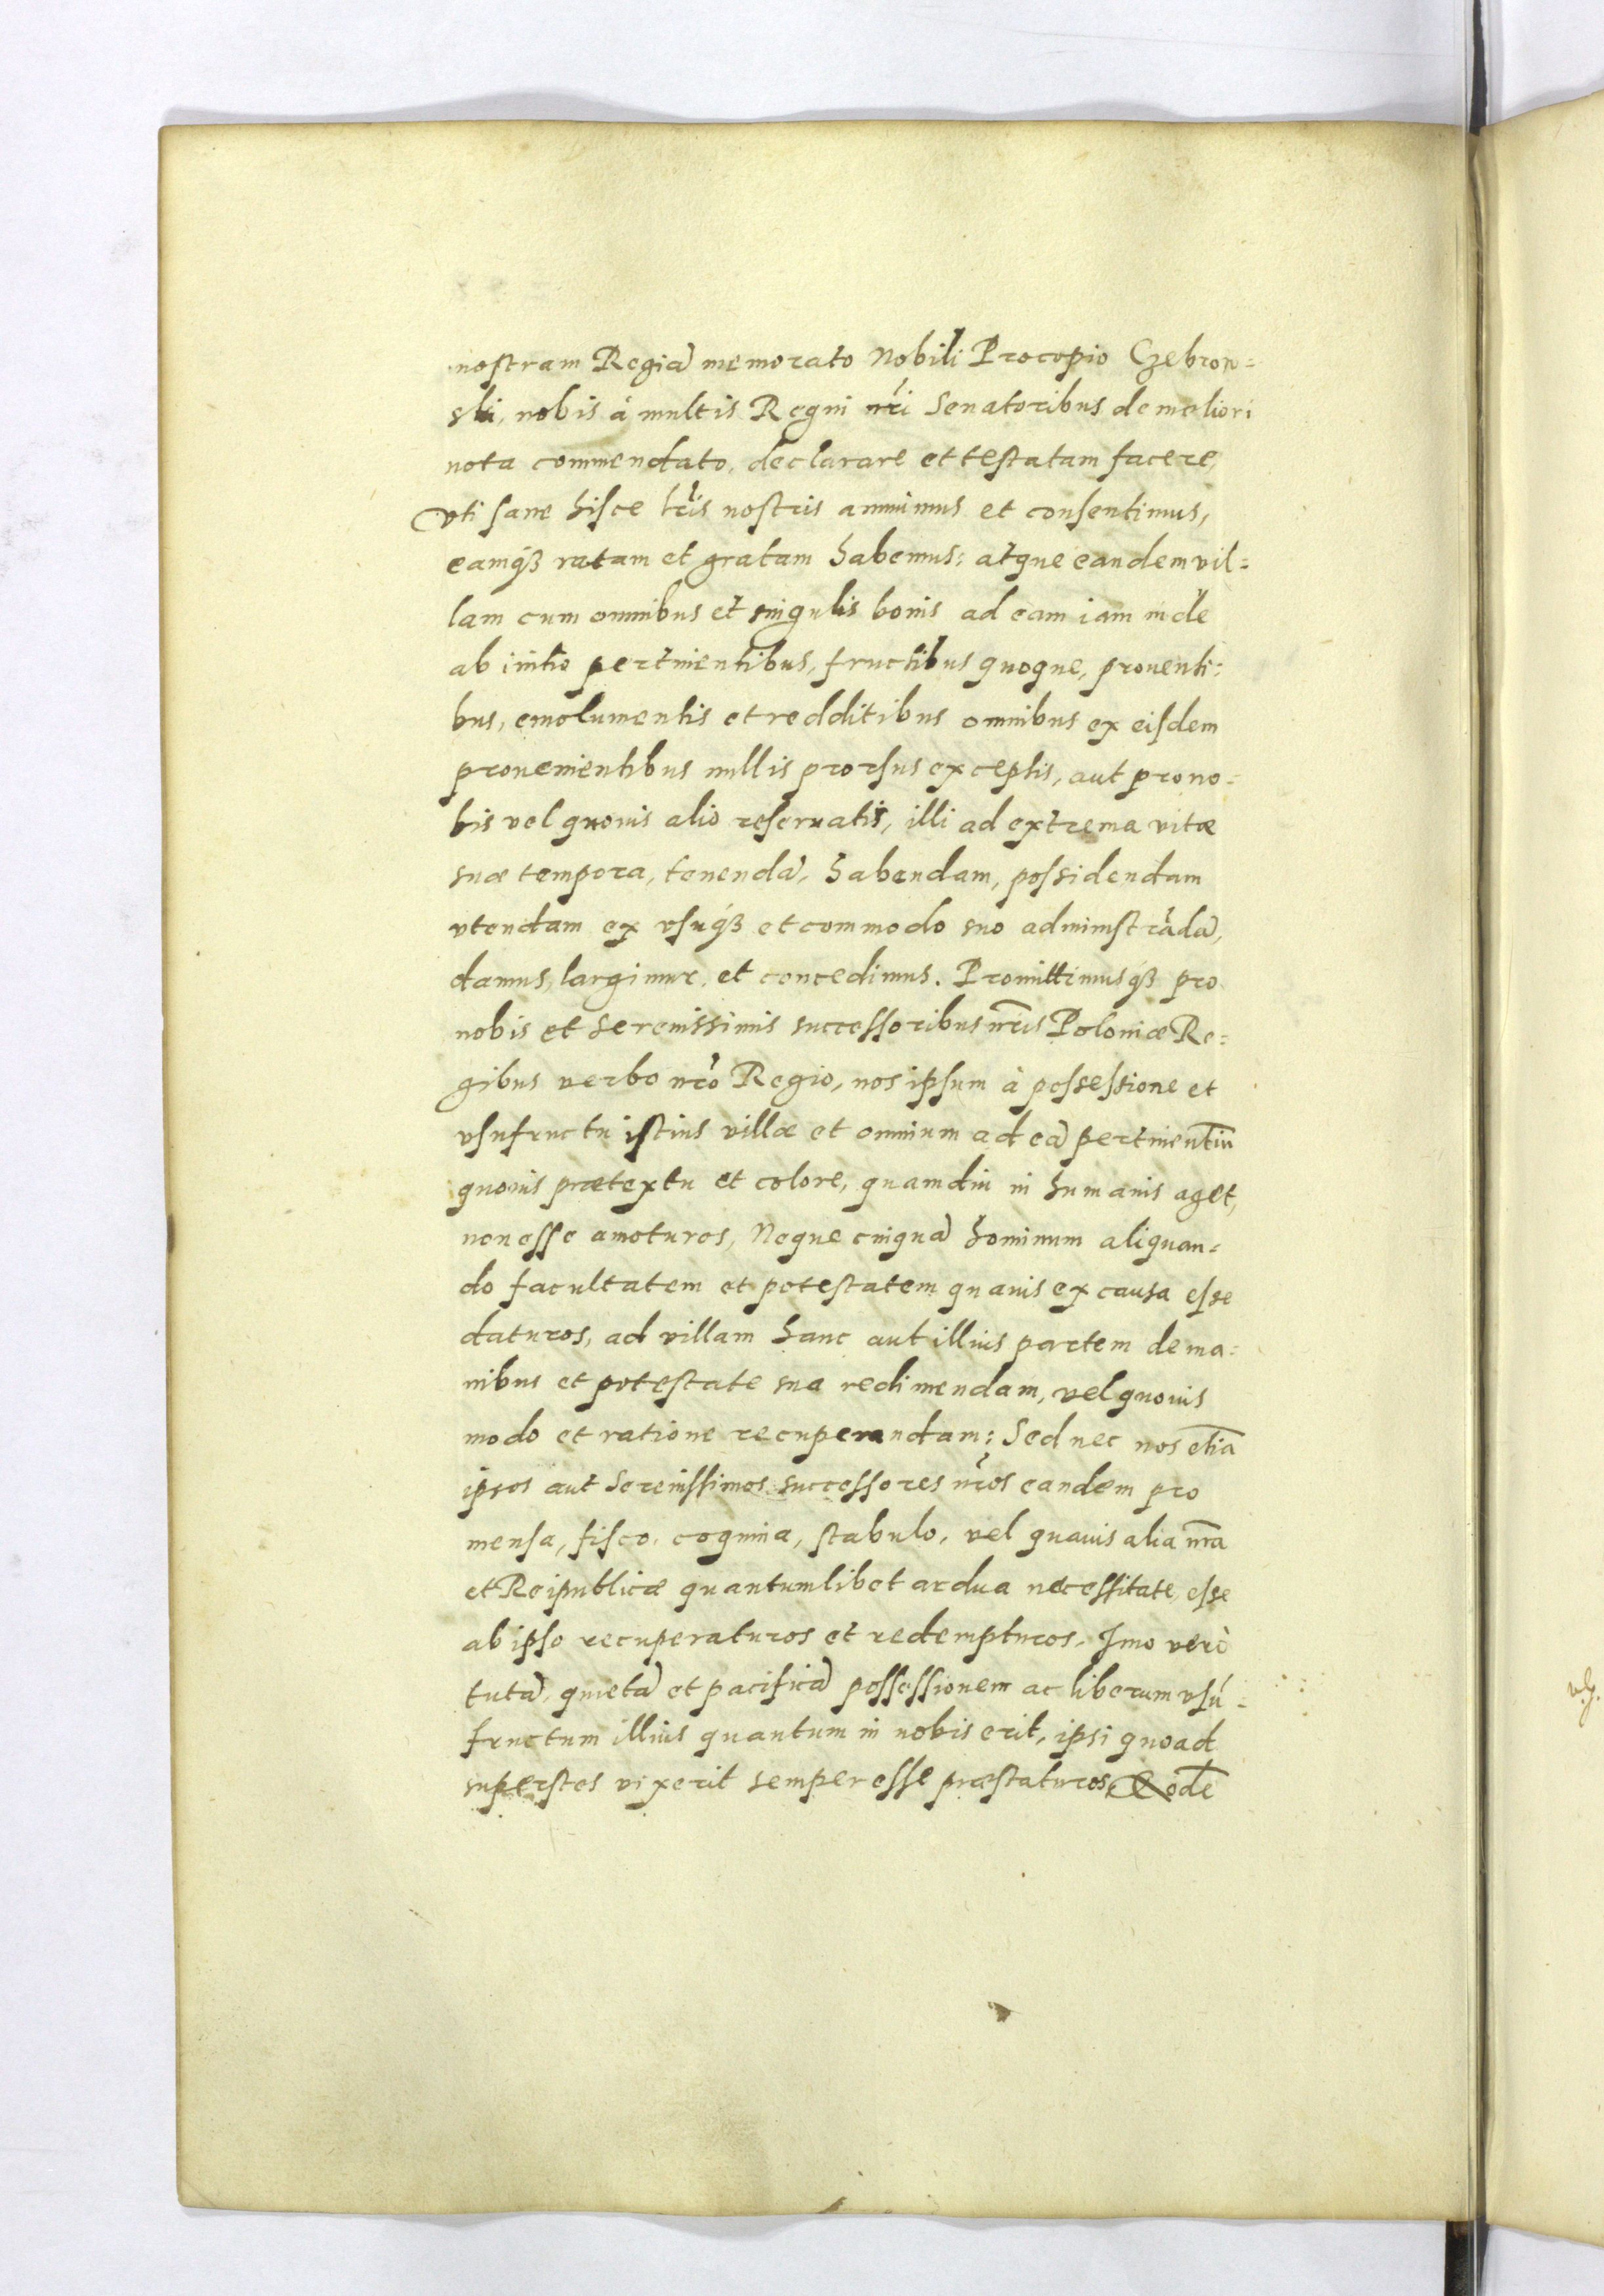 nostram Regiã memorato Nobili Procopio Czebrow=
ski, nobis à multis Regni nr̃i Senatoribus de meliori
nota commendato, declarare et testatam facere,
vti sane hisce lr̃is nostris annuimus et consentimus,
eamq́ȝ ratam et gratam habemus: atque eandem vil=
lam cum omnibus et singulis bonis ad eam iam inde
ab initio pertinentibus, fructibus quoque, prouenti=
bus, emolumentis et redditibus omnibus ex eisdem
prouenientibus nullis prorsus exceptis, aut pro no=
bis vel quouis alio reseruatis, illi ad extrema vitæ
suæ tempora, tenendã, habendam, possidendam
vtendam ex vsuq́ȝ et commodo suo administrãdã,
damus, largimur, et concedimus. Promittimusq́ȝ pro
nobis et Serenissimis successoribus nr̃is Poloniæ Re=
gibus verbo nr̃o Regio, nos ipsum à possessione et
vsufructu istius villæ et omnium ad eã pertinentiũ
quouis prætextu et colore, quamdiu in humanis aget,
non esse amoturos, Neque cuiquã hominum aliquan=
do facultatem et potestatem quauis ex causa esse
daturos, ad villam hanc aut illius partem de ma=
nibus et potestate sua redimendam, vel quouis
modo et ratione recuperandam: Sed nec nos etiã
ipsos aut Serenissimos successores nr̃os eandem pro
mensa, fisco, coquina, stabulo, vel quauis alia nr̃a
et Reipublicæ quantumlibet ardua necessitate, esse
ab ipso recuperaturos et redempturos. Imo verò
tutã, quietã et pacificã possessionem ac liberum vsú=
fructum illius quantum in nobis erit, ipsi quoad
superstes vixerit semper esse præstaturos Eodẽ